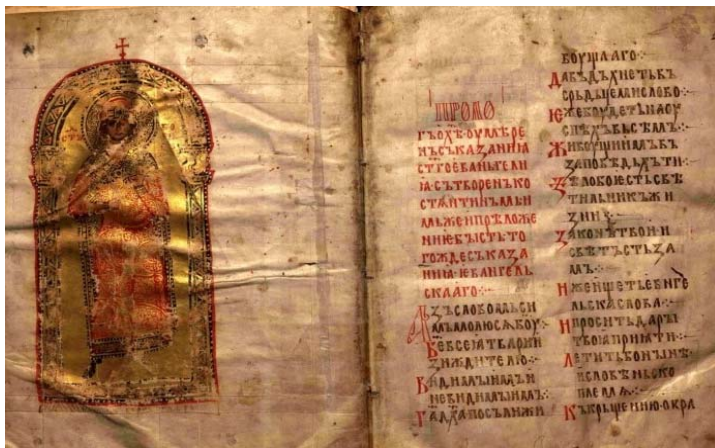 ПРОЛО
гъ о х҃ѣ оумѣре
нъ съказаниꙗ
ст҃го еваньгели
ꙗ сътворенъ ко
стѧнтинъмь и
мьже и прѣложе
ние бысть то
гожде съказа
ниꙗ евангель
скаго·:·
Азъ словомь си
мь молюсѧ боу҃·:·
Б҃е всеꙗ твари и
зиждителю·:·
Видимыимъ и
невидимыимъ·
Г҃а дх҃а посъли жи
воущаго·:·
Да въдъхнеть въ
срьдьце ми слово·
Еже боудеть на оу
спѣхъ вьсѣмъ·:·
Живоущиимъ въ
заповѣдьхъ ти·
Ѕѣло бо есть свѣ
тильникъ жи
зни·:·
Законъ твои и
свѣтъ стьза
мъ·:·
Иже ищеть ев҃нге
льска слова·:·
И просить дары
твоꙗ прияти·:·
Летить бо нынѣ
и словѣньско
племѧ·:·
Къ крьщению обра